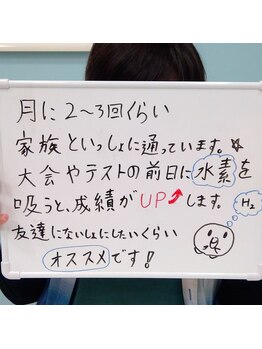 月に2~3回くらい
家族といっしょに通っています。☆
大会やテストの前日に水素を
吸うと、成績がUPします。
H₂
友達にないしょにしたいくらい
オススメです!